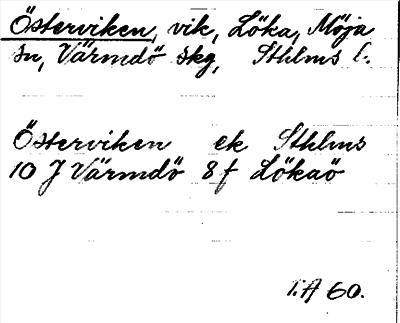 Österviken, vik, Löka, Möja
sn, Värmdö skg, Sthlms l.
Österviken ek Sthlms
10 J Värmdö 8f Lökaö
T.A 60.